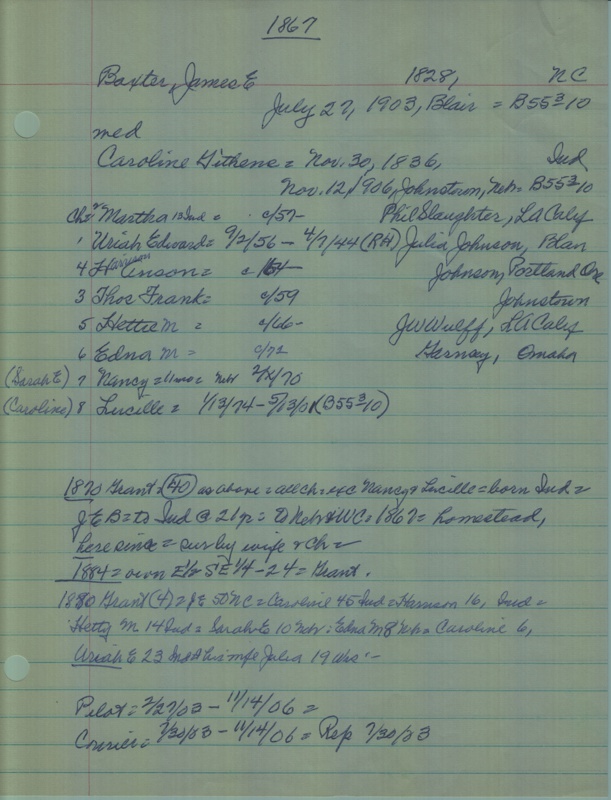 1867
Baxter, James E 1828, NC
July 27, 1903, Blair = B55 3 10
med
Caroline Githens = Nov. 30, 1836, Ind
Nov. 12, 1906, Johnstown, Neb = B55 3 10
Ch = 2 Martha 13 Ind = c/57- Phil Slaughter, LA Calif
1 Uriah Edward = 9/2/56 - 4/7/44 (RH) Julia Johnson, Blair
4 Harrison = c/64 Johnson, Portland Ore
3 Thos Frank = c/59 Johnstown
5 Hettie M = c/66- JW Wulff, LA Calif
6 Edna M = c/72 Omaha
(Sarah E) 7 Nancy = 11 mo = Neb 2/ /70
(Caroline) 8 Lucille = 1/13/74 - 5/13/01 (B55 3 10)
1870 Grant = (40) as above = all ch = exc Nancy & Lucille = born Ind =
JEB = to Ind @ 21 yr = to Neb & WC = 1867 = homestead,
here since = sur by wife & ch =
1884 = own E 1/2 SE 1/4 - 24 = Grant.
1880 Grant (4) = JE 50 NC = Caroline 45 Ind = Harrison 16, Ind =
Hetty M 14 Ind = Sarah E 10 Neb = Edna M 8 Neb = Caroline 6,
Uriah E 23 Ind & his wife Julia 19 Wis -
Pilot = 11/14/06 =
Courier = 7/30/03 - 11/14/06 = Rep 7/30/03